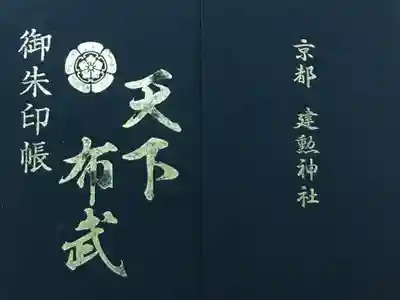 御朱印帳
天下
布武
京都 建勲神社